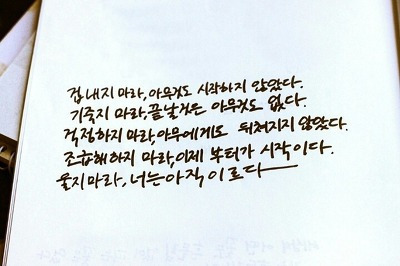 겁내지 마라, 아무것도 시작하지 않았다.
기죽지 마라, 끝난것은 아무것도 없다.
걱정하지 마라, 아무에게도 뒤쳐지지 않았다.
조급해하지 마라, 이제 부터가 시작이다.
울지마라, 너는 아직 이르다